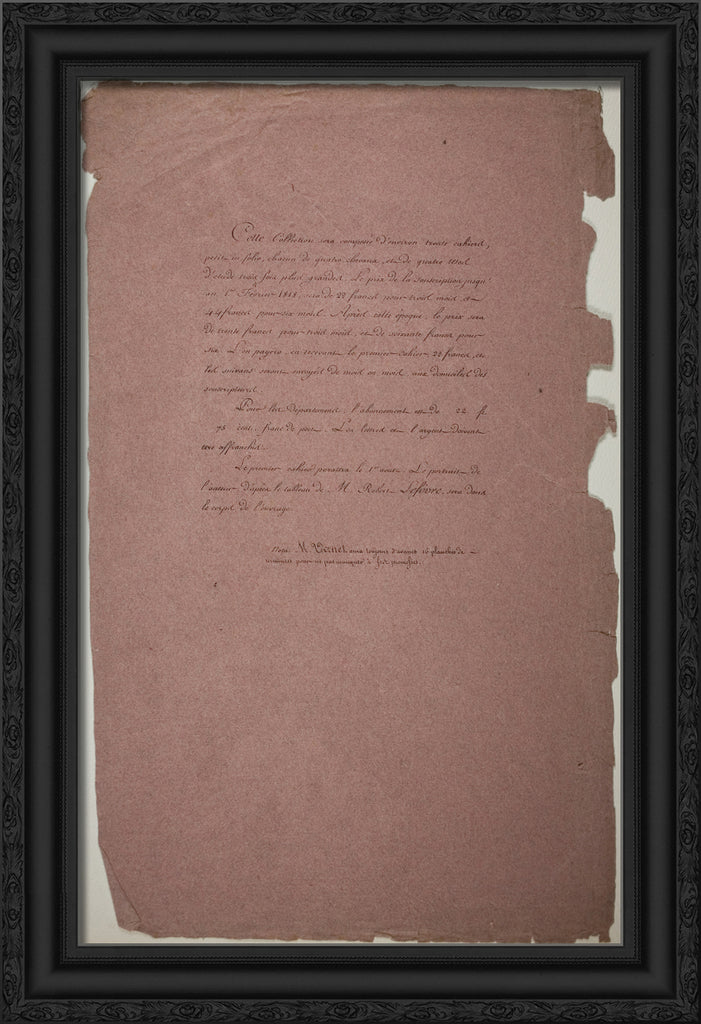 Cette Collection sera composée d'environ trente cahiers,
petit in folio, chacun de quatre chevaux, et de quatre
d'étude trois fois plus grandes. Le prix de la souscription jusqu'
au 1er Février 1818, sera de 22 francs pour trois mois et
44 francs pour six mois. Après cette époque, le prix sera
de trente francs pour trois mois, et de soixante francs pour
six. L'on payera, en recevant le premier cahier 22 francs, et
les suivans seront envoyés de mois en mois aux domiciles des
souscripteurs.
Pour les Départemens, l'abonnement est de 22 fr.
75 cent. franc de port. Les lettres et l'argent doivent
être affranchis.
Le premier cahier paraîtra le 1er Le portrait de
l'auteur d'après le tableau de M. Robert Lefèvre, sera dans
le corps de l'ouvrage.
Nota. M. Vernet aura toujours d'avance 16 planches de
terminées pour ne pas manquer à ses promesses.